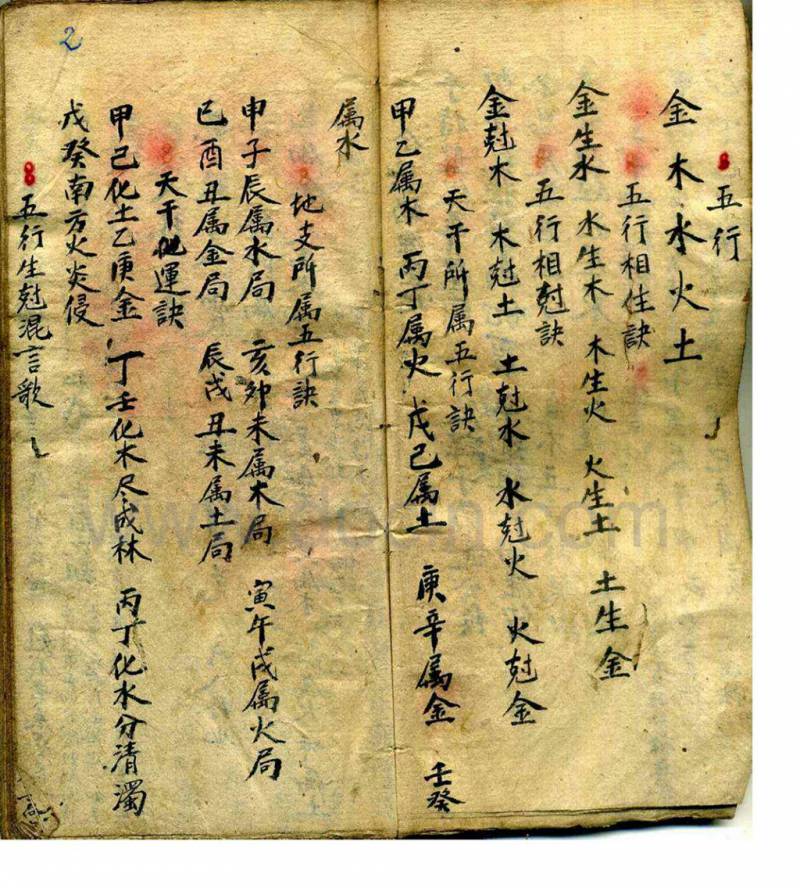 五行
金木水火土
五行相住訣
金生水 水生木 木生火 火生土 土生金
五行相尅訣
金尅木 木尅土 土尅水 水尅火 火尅金
天干所属五行訣
甲乙属木 丙丁属火 戊己属土 庚辛属金 壬癸
属水
地支所属五行訣
申子辰属水局 亥卯未属木局 寅午戌属火局
巳酉丑属金局 辰戌丑未属土局
天干化運訣
甲己化土乙庚金 丁壬化木尽成林 丙丁化水分清濁
戊癸南方火炎侵
五行生尅混言歌
2